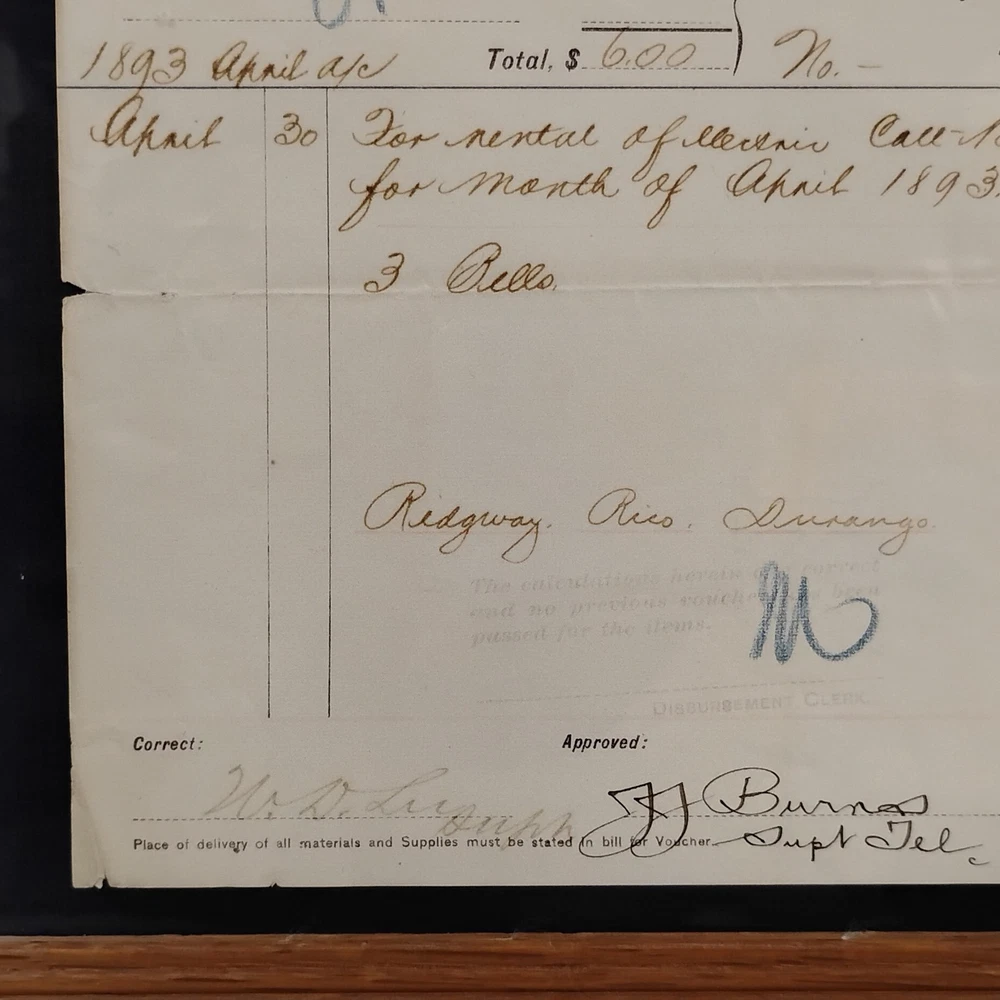 1893 April a/c Total, $ 6.00 No. -
April 30 For rental of Electric Call-
for Month of April 1893
3 Bells.
Ridgway. Rico. Durango.
The calculations herein are correct
and no previous voucher has been
passed for the items.
M
DISBURSEMENT CLERK.
Correct: Approved:
W. D. Lee JJ Burns
Supt Supt Tel.
Place of delivery of all materials and Supplies must be stated in bill for Voucher.